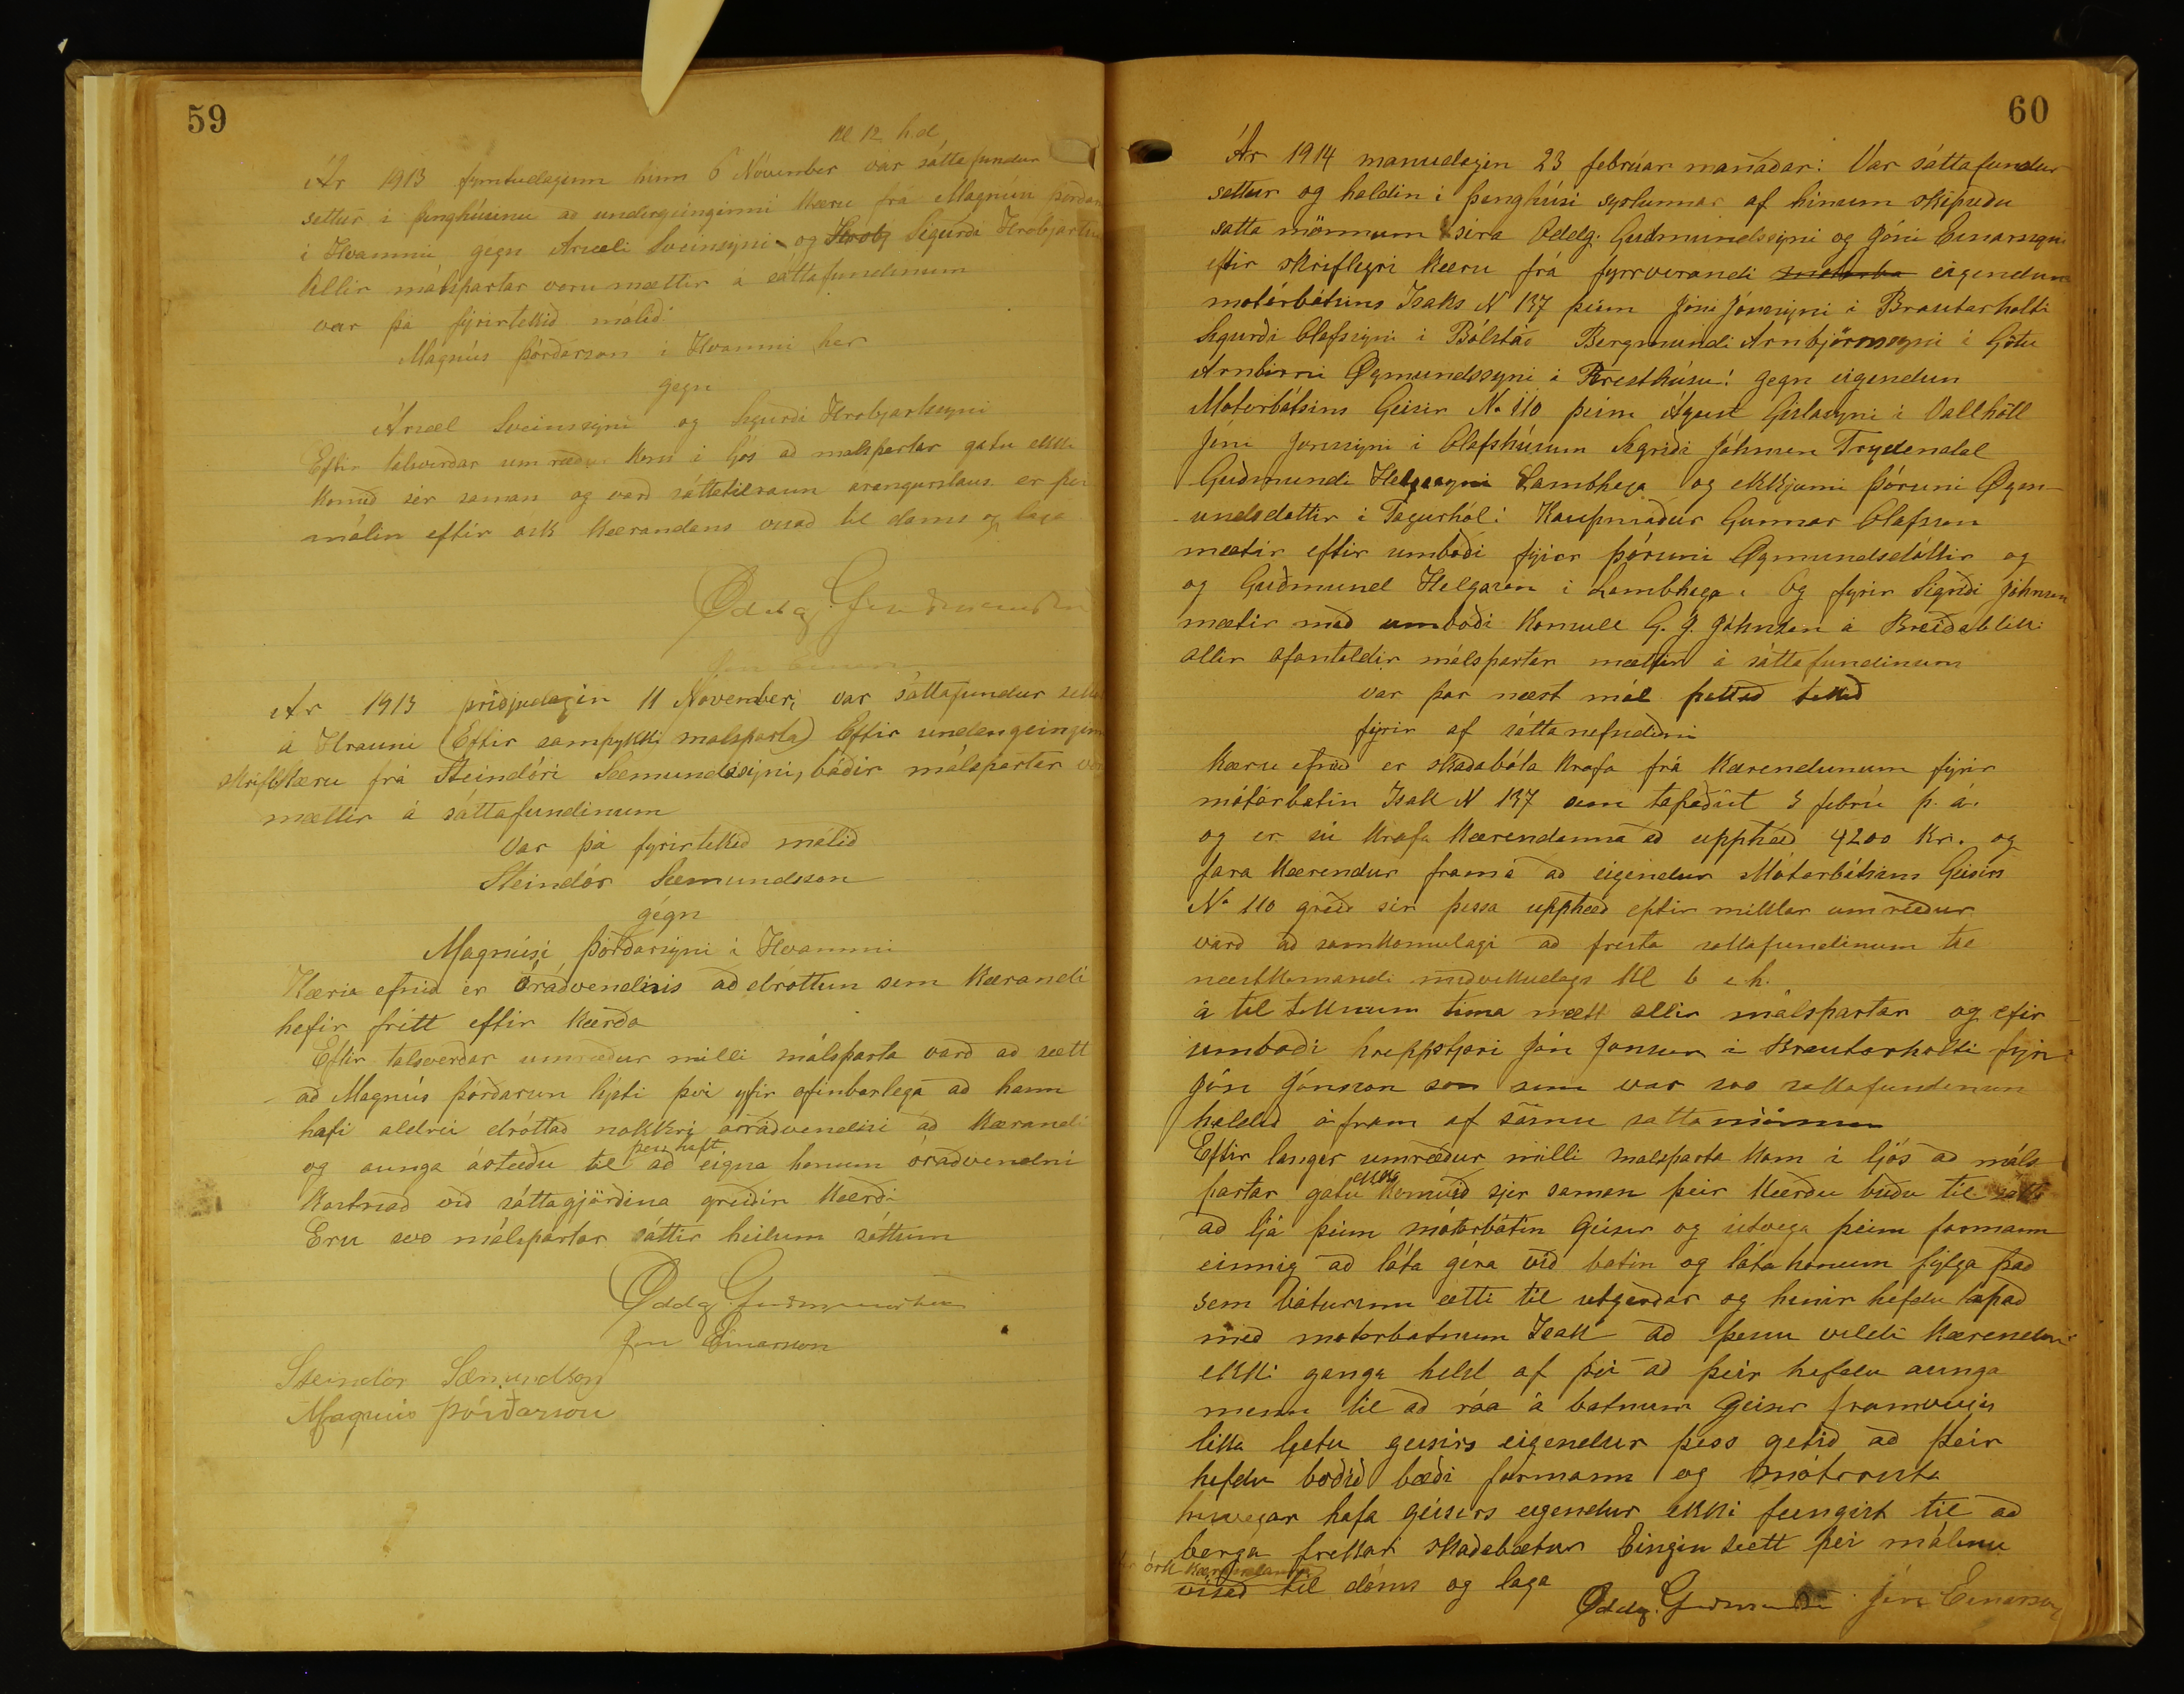 59
Kl 12 h.d
Ár 1913 fymtudaginn hinn 6 Nóvember var sáttafundur
settur i þinghúsinu að undergeinginni Kæru frá Magnúsi Þórðar
i Hvammi gegn Arsæli Sveinsyni og Hrobj Sigurði Hrobjartss
Allir málspartar voru mættir a sáttafundinum
var þá fyrirtekið málið
Magnús Þórðarson i Hvammi her
gegn
Ársæl Sveinssyni og Sigurði Hrobjartssyni
Eftir talsverðar umræður kom i ljós að malspartar gatu ekki
komið sér saman og varð sáttatilraun arangurslaus er þvi
málin eftir ósk Kærandans visað til doms og laga
Oddg. Guðmundsson
Jón Einarson
Ar 1913 þriðjudagin 11 Nóvember; var sáttafundur settur
á Hrauni (Eftir samþykki malsparta) Eftir undangeingini
skriflKæru frá Steindóri Sæmundssyni, báðir málspartar voru
mættir á sáttafundinum
Var þá fyrirtekið málið
Steindór Sæmundsson
gégn
Magnúsi Þórðarsyni i Hvammi
Kæru efnið er óráðvendisis að dróttun sem Kærandi
hefir frítt eftir Kærða
Eftir talsverðar umræður milli málsparta varð að sætt
að Magnús Þórðarson lýsti þvi yfir ofinbarlega að hann
hafi aldrei dróttað nokkri óráðvendisi að Kærandi
og aunga ástæðu til þess haft að eigna honum óráðvendni
Kostnað við sáttagjörðina greiðir Kærði
Eru svo málspartar sáttir heilum sáttum
Oddg. Guðmundsson
Jón Einarsson
Steindór Sæmundson
Magnús Þórðarson
60
Ár 1914 manudagin 23 febrúar manáðar: Var sáttafundur
settur og haldin i þinghúsi syslunnar af hinum skipuðu
satta mönnum sira Oddg. Guðmundssyni og Jóni Einarssyni
eftir skriflegri kæru frá fyrrverandi motorba eigendum
motórbátsins Isaks N 137 þeim Jóni Jónssyni i Brautarholti
Sigurði Olafssyni i Bólstað Bergmundi Arnbjörnssyni i Götu
Arnbirni Øgmundssyni i Presthúsu! gegn eigendun
Motorbátsins Geisir No 110 þeim Águst Gislasyni i Vallhöll
Jóni Jonssyni i Olafshúsum Sigriði Jóhnsen Frydendal
Guðmundi Helgasyni Lambhaga og ekkjunni Þóruni Øgm-
undsdottir i Fagurhól: Kaupmaður Gunnar Olafsson
mætir eftir umboði fyrir Þóruni Øgmundsdóttir og
og Guðmund Helgason i Lambhaga. Og fyrir Sigriði Jóhnsen
mætir með umboði Konsull G. J. Jóhnsen á Breiðabliki
allir ofantaldir málspartar mættir á sáttafundinum
var þar næst mál þettað tekið
fyrir af sáttanefndinni
Kæru efnið er skaðabóta krafa frá Kærendunum fyrir
mótórbatin Isak N 137 sem tapaðist 3 febrú þ. á.
og er sú krafa Kærendanna að upphæð 4200 kr. og
fara Kærendur framá að eigendur Mótorbátsins Geisirs
No 110 greiði sér þessa upphæð eftir miklar umræður
varð að samkomulagi að fresta sattafundinum til
næstkomandi miðvikudags kl 6 e.h.
á til teknum tima mætt allir málspartar og eftir
umboði hreppstjori Jón Jonsson i Brautarholti fyrir
Jón Jónsson son sinn var svo sattafundinum
haldið á fram af sömu satta mönnum
Eftir langar umræður milli malsparta kom i ljós að máls
partar gatu ekki komið sjer saman þeir Kærðu buðu til satta
að ljá þeim mótorbátin Geisir og útvega þeim formann
einnig að láta géra við batin og láta honum fylgja það
sem báturinn ætti til utgerðar og hinir hefdu tapað
með motorbatnum Isak að þessu vildi Kærendur
ekki ganga held af þvi að þeir hefdu aunga
menn til að róa á batnum Geisir framvegis
lika ljetu geisirs eigendur þess getið að þeir
hefdu boðið bæði formann og mótorista
hinsvegar hafa géisirs eigendur ekki feingist til að
berga frekari skaðabætur Eingin sætt þvi málinu
ósk Kærandanna
visað til dóms og laga
Oddg. Guðmundss Jón Einarsson